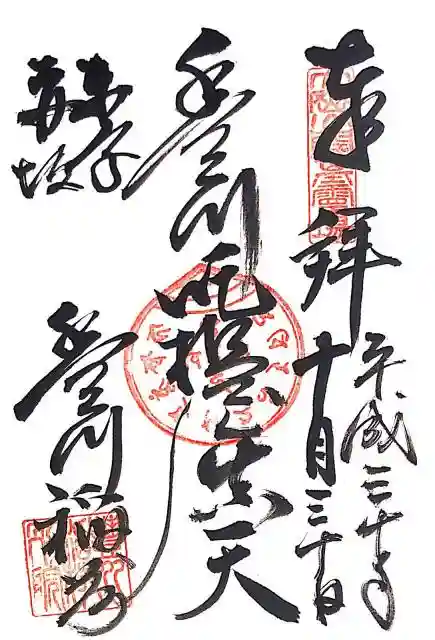 奉拝
平成三十年
十月三十日
豊川吒枳尼真天
東京
赤坂
豊川稲荷